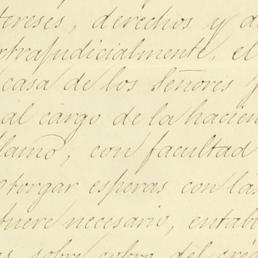 tereses, derechos y a
xtrajudicialmente, el
casa de los Señores
al cargo de la hacien
llamo, con facultad
otorgar esperas con las
uere necesario, entab
sobre cobro del cré